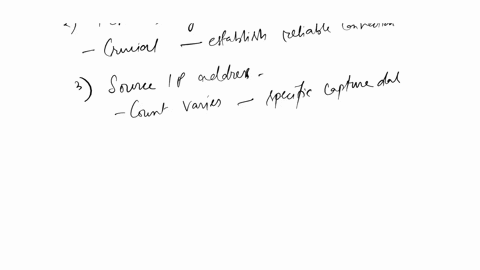 - Crucial — establish reliable connection
3) Source IP address.
- Count varies — specific capture dat